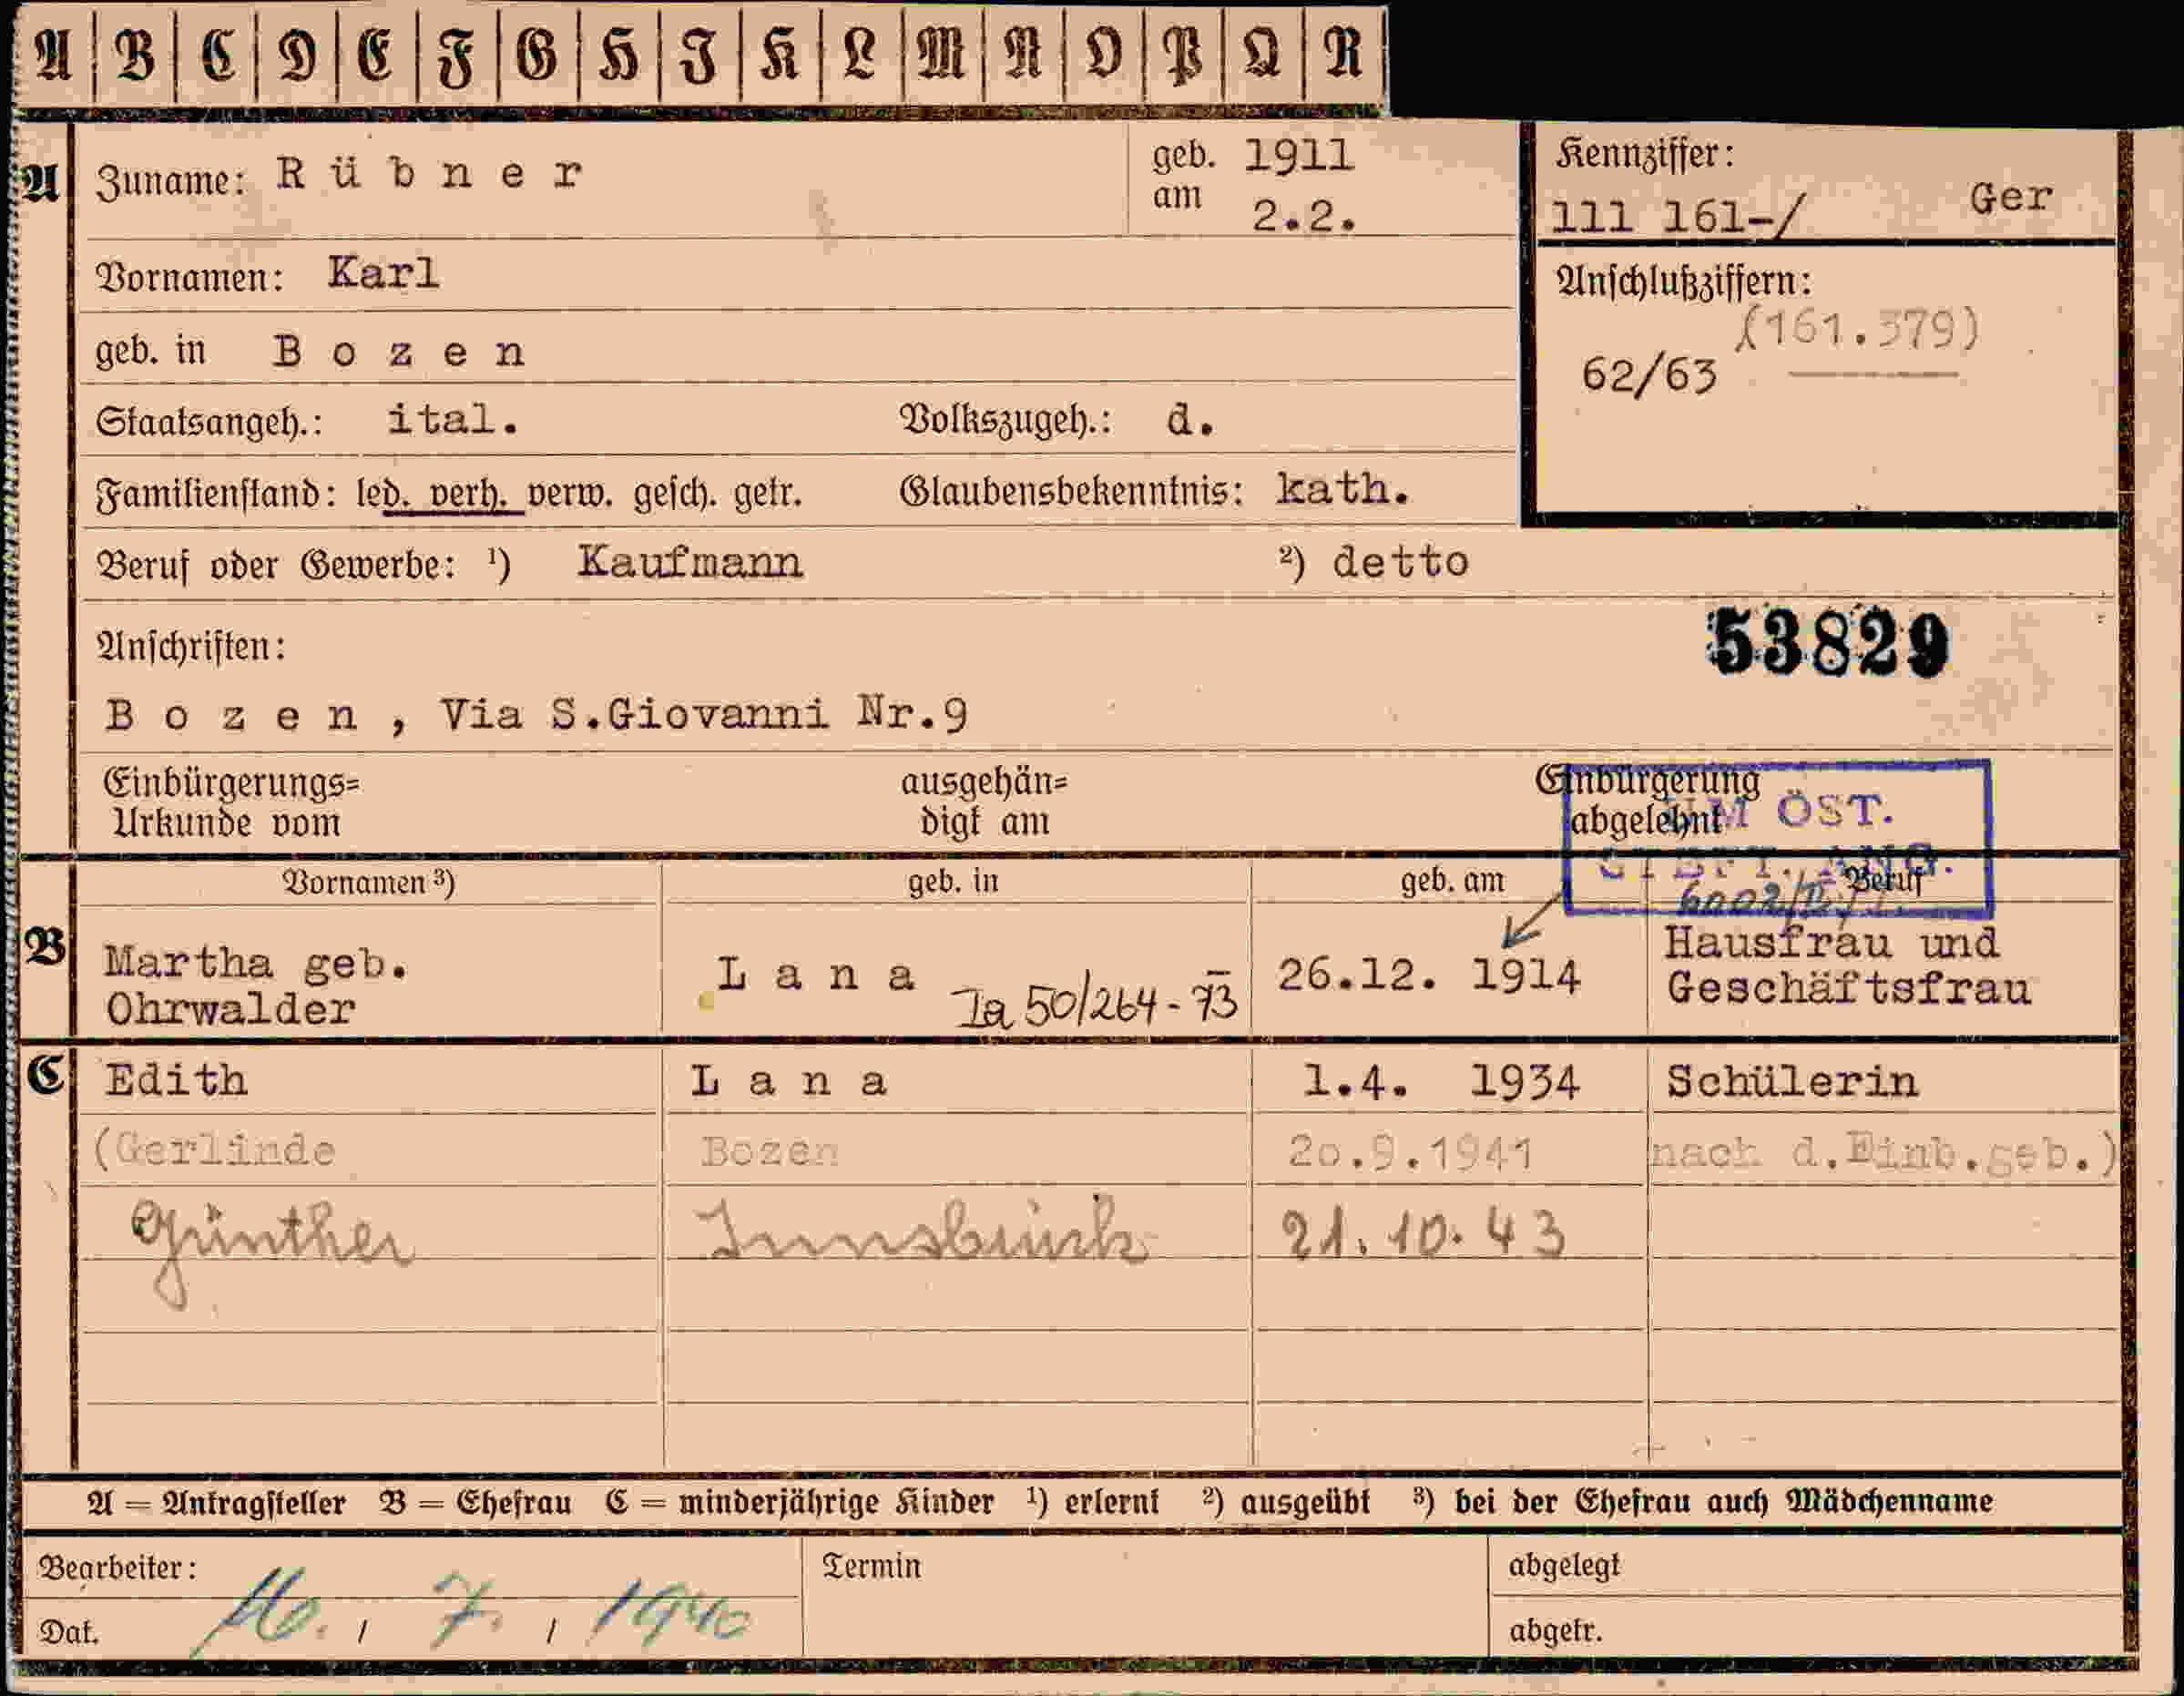 A B C D E F G H I K L M N O P Q R
A Zuname: Rübner geb. am 1911 2.2. Kennziffer: 111 161-/ Ger
Vornamen: Karl Anschlußziffern: (161.379)
geb. in Bozen 62/63
Staatsangeh.: ital. Volkszugeh.: d.
Familienstand: led. verh. verw. gesch. getr. Glaubensbekenntnis: kath.
Beruf oder Gewerbe: ¹) Kaufmann ²) detto
Anschriften: 53829
Bozen, Via S.Giovanni Nr.9
Einbürgerungs= ausgehän= Einbürgerung
Urkunde vom digt am abgelehnt ÖST.
Vornamen ³) geb. in geb. am Beruf
B Martha geb. Lana 26.12. 1914 Hausfrau und
Ohrwalder Ia 50/264-73 Geschäftsfrau
C Edith Lana 1.4. 1934 Schülerin
(Gerlinde Bozen 20.9.1941 nach d.Einb.geb.)
Günther Innsbruck 21.10.43
A = Antragsteller B = Ehefrau C = minderjährige Kinder ¹) erlernt ²) ausgeübt ³) bei der Ehefrau auch Mädchenname
Bearbeiter: Termin abgelegt
Dat. 16. / 7. / 1940 abgetr.